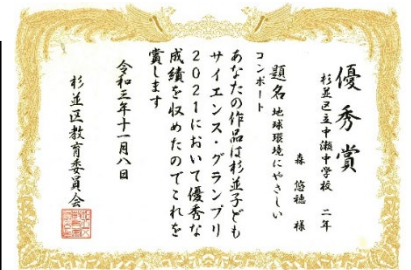 優秀賞
杉並区立中瀬中学校 二年
森 悠穂 様
題名 地球環境にやさしい
コンポート
あなたの作品は杉並子ども
サイエンス・グランプリ
2021において優秀な
成績を収めたのでこれを
賞します
令和三年十一月八日
杉並区教育委員会